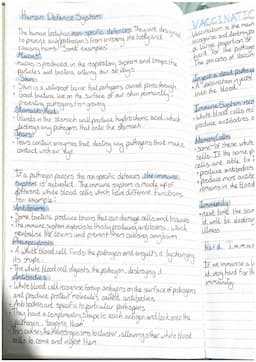 Human Defence System
The human body has non-specific defences. They are designed
to prevent pathogens from entering the body and
causing harm. Some examples:
Mucus:
Mucus is produced in the respiratory system and traps the
particles and bacteria
Skin:
Skin is a waterproof barrier that pathogens cannot pass through
Good bacteria live on the surface of our skin
preventing pathogens from growing
Stomach Acid:
Glands in the stomach wall produce hydrochloric acid which
destroys any pathogens that enter the stomach
Tears:
Tears contain enzymes that destroy any pathogens that make
contact with our eye.
If a pathogen passes the non-specific defences the immune
system is activated. The immune system is made up of
different white blood cells which have different functions,
for example:
Antitoxins:
Some bacteria produce toxins that can damage cells and tissues
The immune system responds to this by producing antitoxins, which
neutralise the toxins and prevent them causing
Phagocytosis
A white blood cell finds the pathogen and engulfs it by changing
its shape.
The white blood cell digests the pathogen, destroying it
Antibodies
White blood cell recognise foreign antigens on the surface of pathogens
and produce protein molecules called antibodies
Antibodies are specific to particular pathogens
They have a complementary shape to each antigen and lock onto the
pathogen, tagging them
This causes the pathogens to cluster, allowing other white blood
cells to come and ingest them
VACCINATIC
Vaccination is the
recognise and destroy
a large proportion of
hard for the pathogen
The process of vaccin
A vaccination
into the blood.
Immune System
White blood cells
produce antibodies
Memory Cells
Some of these white
cells. If the same p
cells are able to:
produce antibodies
produce more antib
remains in the blood
Immunity
next time the same
it will be destroy
illness
Herd Immun
If we immunise a l
it very hard for th
immunity.